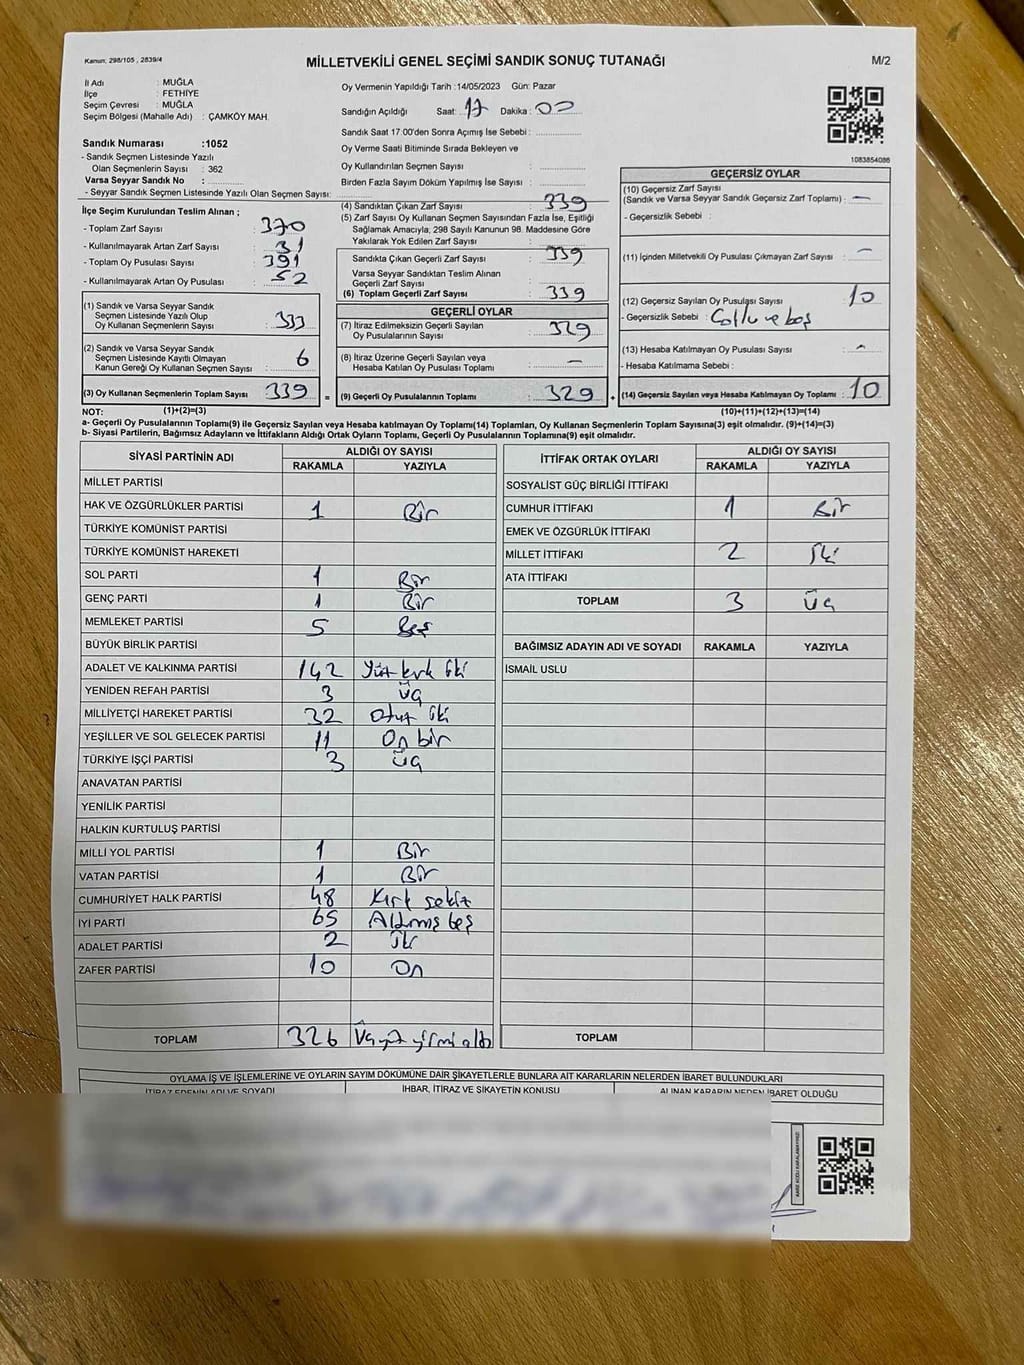 Kanun, 298/105 , 2839/4
MİLLETVEKİLİ GENEL SEÇİMİ SANDIK SONUÇ TUTANAĞI
M/2
İl Adı : MUĞLA
İlçe : FETHİYE
Seçim Çevresi : MUĞLA
Seçim Bölgesi (Mahalle Adı) : ÇAMKÖY MAH.
Sandık Numarası :1052
- Sandık Seçmen Listesinde Yazılı
Olan Seçmenlerin Sayısı : 362
Varsa Seyyar Sandık No :
- Seyyar Sandık Seçmen Listesinde Yazılı Olan Seçmen Sayısı:
İlçe Seçim Kurulundan Teslim Alınan ;
- Toplam Zarf Sayısı : 370
- Kullanılmayarak Artan Zarf Sayısı : 31
- Toplam Oy Pusulası Sayısı : 391
- Kullanılmayarak Artan Oy Pusulası : 52
(1) Sandık ve Varsa Seyyar Sandık
Seçmen Listesinde Yazılı Olup
Oy Kullanan Seçmenlerin Sayısı : 333
(2) Sandık ve Varsa Seyyar Sandık
Seçmen Listesinde Kayıtlı Olmayan
Kanun Gereği Oy Kullanan Seçmen Sayısı : 6
(3) Oy Kullanan Seçmenlerin Toplam Sayısı : 339 =
Oy Vermenin Yapıldığı Tarih :14/05/2023 Gün: Pazar
Sandığın Açıldığı Saat: 17 Dakika : 00
Sandık Saat 17:00'den Sonra Açımış İse Sebebi :
Oy Verme Saati Bitiminde Sırada Bekleyen ve
Oy Kullandırılan Seçmen Sayısı :
Birden Fazla Sayım Döküm Yapılmış İse Sayısı :
(4) Sandıktan Çıkan Zarf Sayısı : 339
(5) Zarf Sayısı Oy Kullanan Seçmen Sayısından Fazla İse, Eşitliği
Sağlamak Amacıyla; 298 Sayılı Kanunun 98. Maddesine Göre
Yakılarak Yok Edilen Zarf Sayısı :
Sandıkta Çıkan Geçerli Zarf Sayısı : 339
Varsa Seyyar Sandıktan Teslim Alınan
Geçerli Zarf Sayısı :
(6) Toplam Geçerli Zarf Sayısı : 339
GEÇERLİ OYLAR
(7) İtiraz Edilmeksizin Geçerli Sayılan
Oy Pusulalarının Sayısı : 329
(8) İtiraz Üzerine Geçerli Sayılan veya
Hesaba Katılan Oy Pusulası Toplamı : –
(9) Geçerli Oy Pusulalarının Toplamı : 329 +
1083854086
GEÇERSİZ OYLAR
(10) Geçersiz Zarf Sayısı
(Sandık ve Varsa Seyyar Sandık Geçersiz Zarf Toplamı) : –
- Geçersizlik Sebebi :
(11) İçinden Milletvekili Oy Pusulası Çıkmayan Zarf Sayısı : –
(12) Geçersiz Sayılan Oy Pusulası Sayısı : 10
- Geçersizlik Sebebi :
ve boş
(13) Hesaba Katılmayan Oy Pusulası Sayısı : –
- Hesaba Katılmama Sebebi :
(14) Geçersiz Sayılan veya Hesaba Katılmayan Oy Toplamı : 10
NOT: (1)+(2)=(3) (10)+(11)+(12)+(13)=(14)
a- Geçerli Oy Pusulalarının Toplamı(9) ile Geçersiz Sayılan veya Hesaba katılmayan Oy Toplamı(14) Toplamları, Oy Kullanan Seçmenlerin Toplam Sayısına(3) eşit olmalıdır. (9)+(14)=(3)
b- Siyasi Partilerin, Bağımsız Adayların ve İttifakların Aldığı Ortak Oyların Toplamı, Geçerli Oy Pusulalarının Toplamına(9) eşit olmalıdır.
SİYASİ PARTİNİN ADI ALDIĞI OY SAYISI
RAKAMLA YAZIYLA
MİLLET PARTİSİ
HAK VE ÖZGÜRLÜKLER PARTİSİ 1 Bir
TÜRKİYE KOMÜNİST PARTİSİ
TÜRKİYE KOMÜNİST HAREKETİ
SOL PARTİ 1 Bir
GENÇ PARTİ 1 Bir
MEMLEKET PARTİSİ 5 Beş
BÜYÜK BİRLİK PARTİSİ
ADALET VE KALKINMA PARTİSİ 142 Yüz kırk iki
YENİDEN REFAH PARTİSİ 3 Üç
MİLLİYETÇİ HAREKET PARTİSİ 32 Otuz iki
YEŞİLLER VE SOL GELECEK PARTİSİ 11 On bir
TÜRKİYE İŞÇİ PARTİSİ 3 Üç
ANAVATAN PARTİSİ
YENİLİK PARTİSİ
HALKIN KURTULUŞ PARTİSİ
MİLLİ YOL PARTİSİ 1 Bir
VATAN PARTİSİ 1 Bir
CUMHURİYET HALK PARTİSİ 48 Kırk sekiz
İYİ PARTİ 65 Altmış beş
ADALET PARTİSİ 2 İki
ZAFER PARTİSİ 10 On
TOPLAM 326 Üç yüz yirmi altı
İTTİFAK ORTAK OYLARI ALDIĞI OY SAYISI
RAKAMLA YAZIYLA
SOSYALİST GÜÇ BİRLİĞİ İTTİFAKI
CUMHUR İTTİFAKI 1 Bir
EMEK VE ÖZGÜRLÜK İTTİFAKI
MİLLET İTTİFAKI 2 İki
ATA İTTİFAKI
TOPLAM 3 Üç
BAĞIMSIZ ADAYIN ADI VE SOYADI RAKAMLA YAZIYLA
İSMAİL USLU
TOPLAM
OYLAMA İŞ VE İŞLEMLERİNE VE OYLARIN SAYIM DÖKÜMÜNE DAİR ŞİKAYETLERLE BUNLARA AİT KARARLARIN NELERDEN İBARET BULUNDUKLARI
İTİRAZ EDENİN ADI VE SOYADI İHBAR, İTİRAZ VE ŞİKAYETİN KONUSU ALINAN KARARIN NEDEN İBARET OLDUĞU